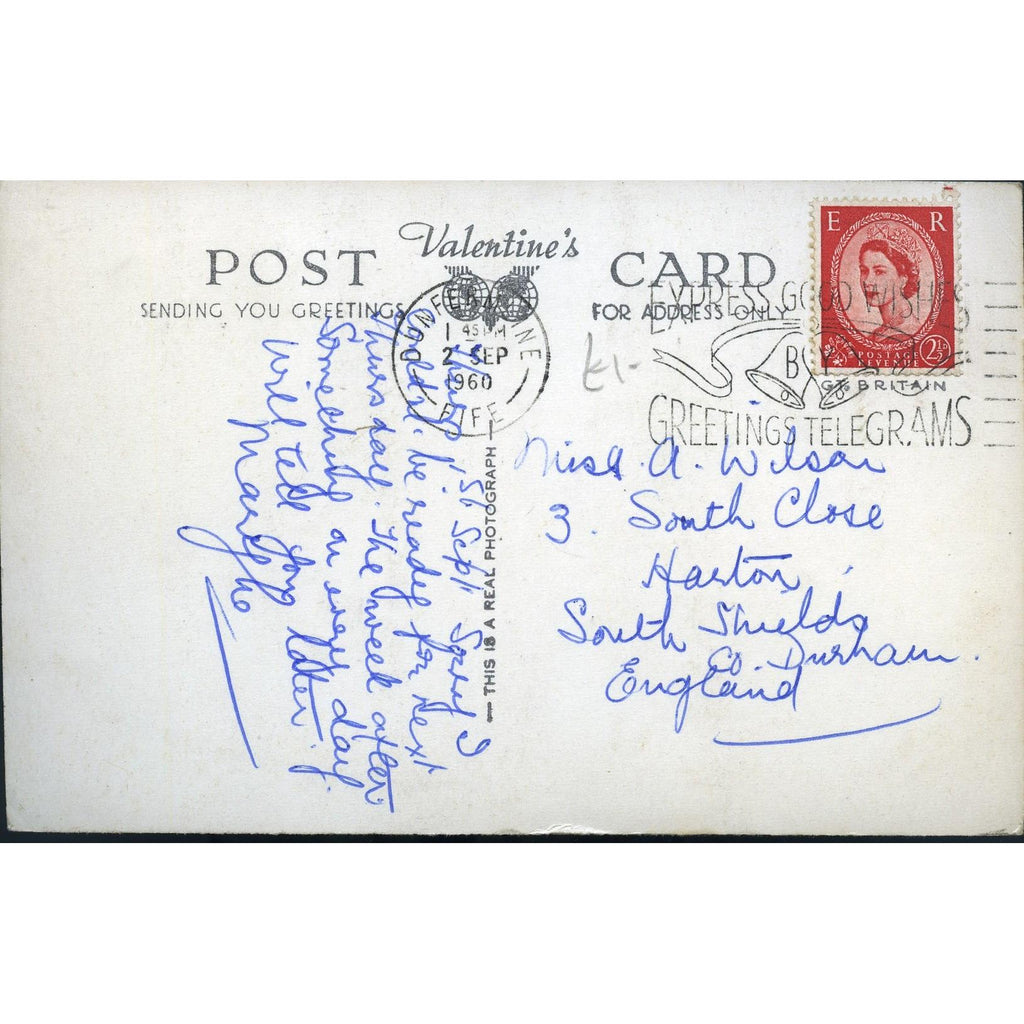 POST Valentine's CARD
SENDING YOU GREETINGS
FOR ADDRESS ONLY
E R
POSTAGE
REVENUE
2½D
GT. BRITAIN
DUNFERMLINE
1 45 PM
2 SEP
1960
FIFE
EXPRESS GOOD WISHES
BY
GREETINGS TELEGRAMS
£1-
THIS IS A REAL PHOTOGRAPH
Thurs 1st Sept Sorry I
couldn't be ready for next
Thursday. The week after.
Something on every day.
Will tell you later.
Miss. A. Wilson
3. South Close
Harton
South Shields
Co. Durham.
England